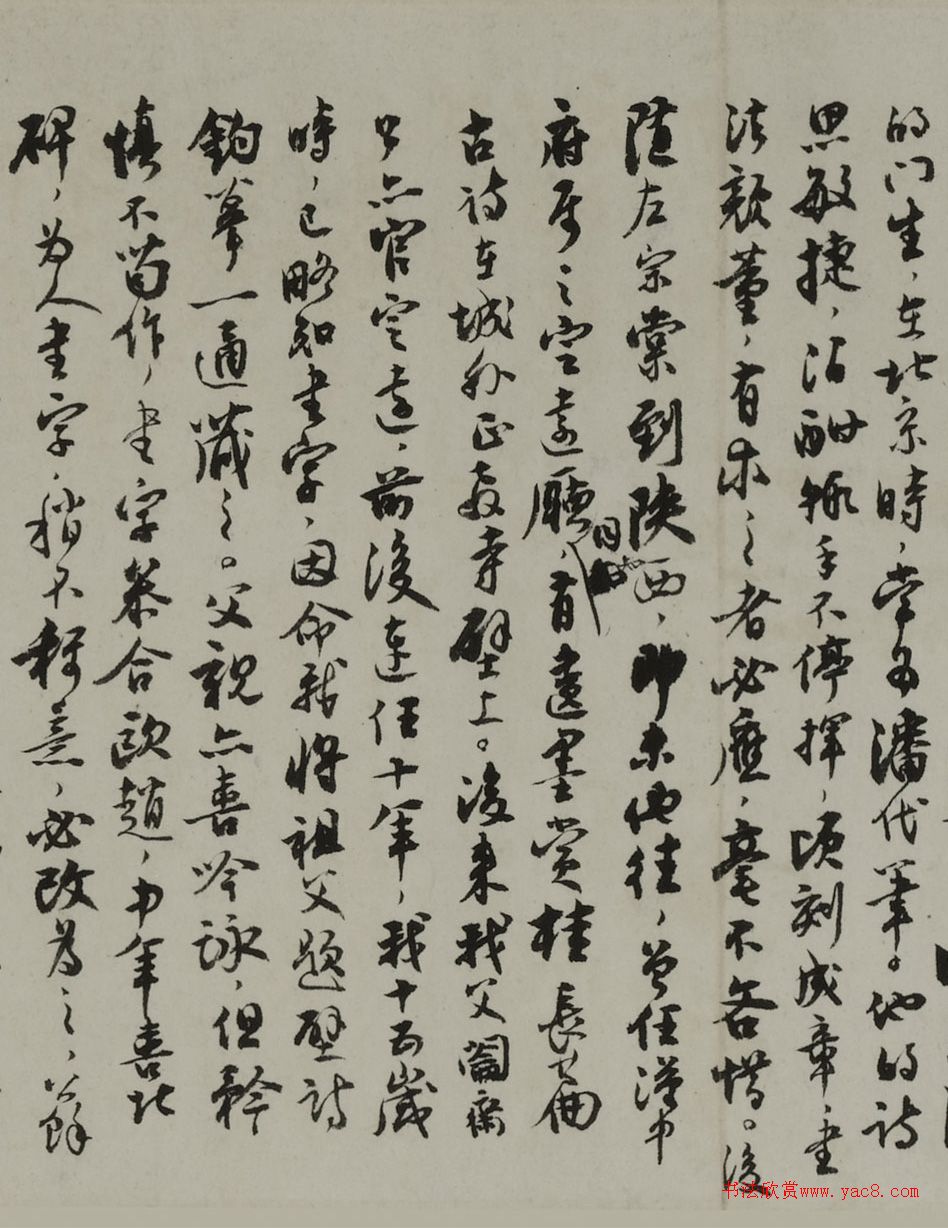 的门生，在北京時，常为潘代筆。他的詩
思敏捷，酒酣輒手不停揮，頃刻成章，書
法顏董，有求之者必應，毫不吝惜。後
隨左宗棠到陝西，即未他往，曾任漢中
府属之定遠廳同知，有遺墨賞桂長篇
古詩在城外正教寺壁上。後來我父闇齋
公亦官定遠，前後連任十年，我十五歲
時，已略知書字，因命我將祖父題壁詩
鈎摹一通藏之。父親亦喜吟詠，但矜
慎不苟作，書字參合歐趙，中年喜北
碑，为人書字，稍不稱意，必改为之，公餘
书法欣赏www.yac8.com